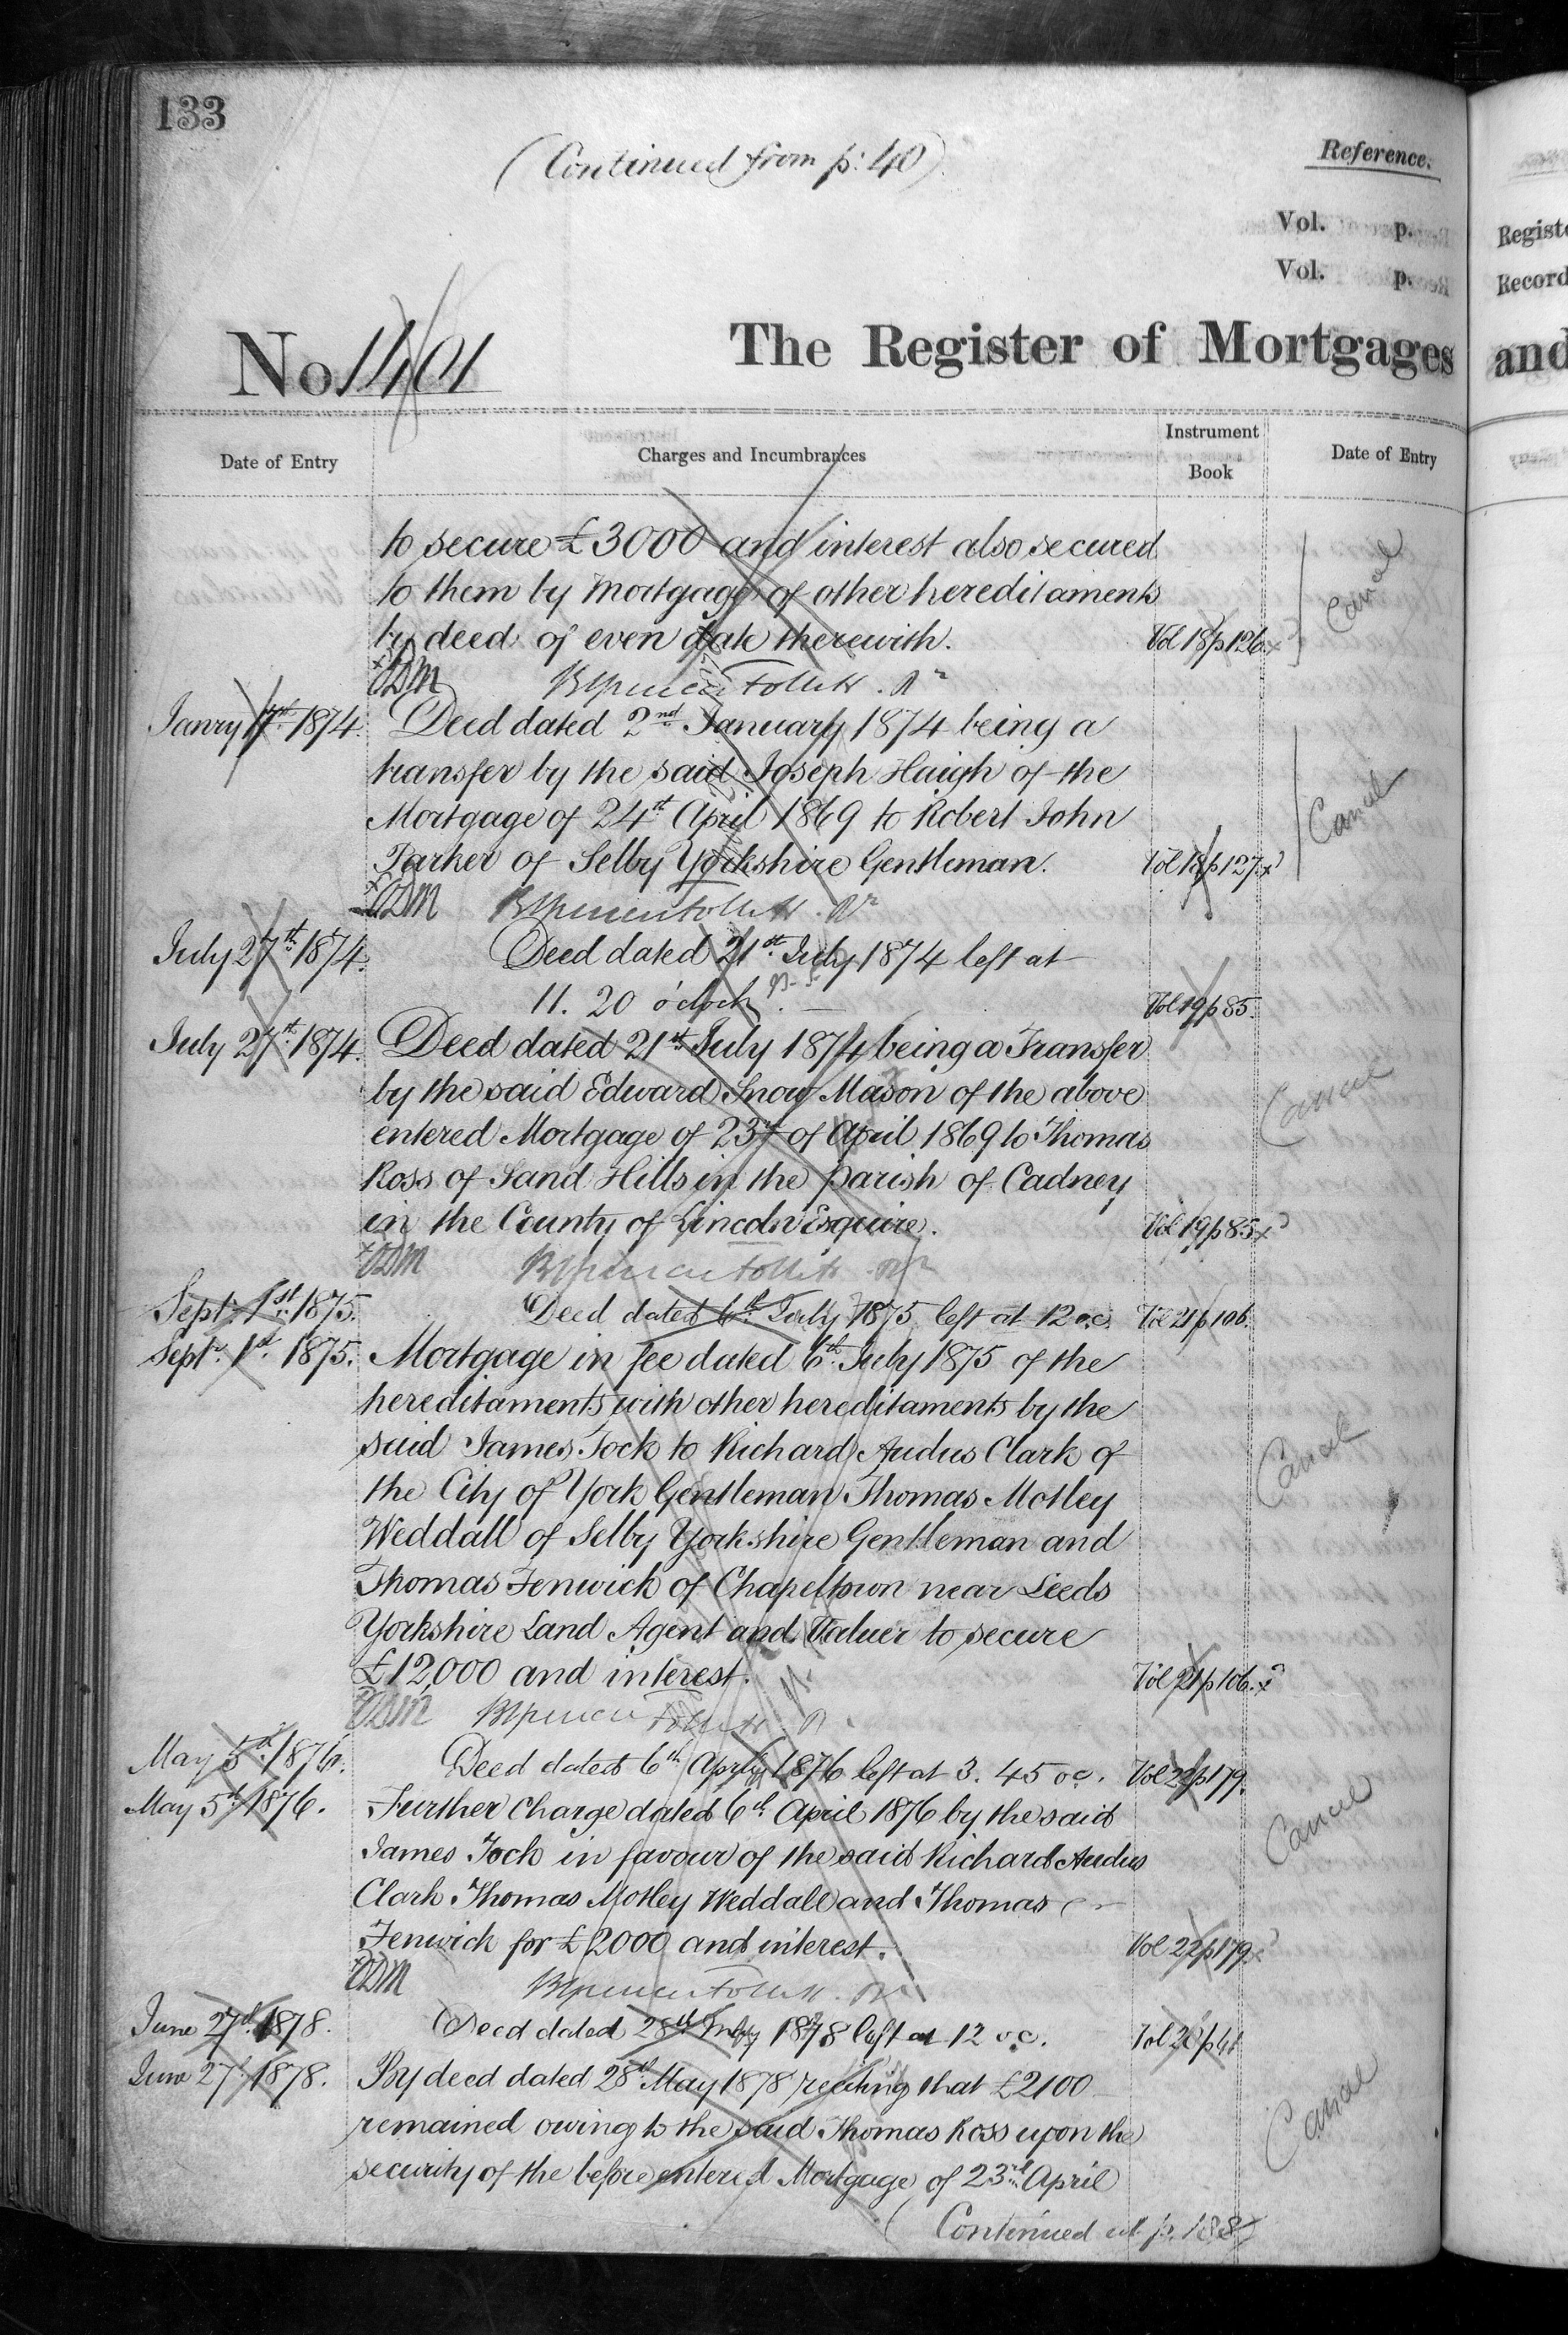 133
(Continued from p: 40)
Reference.
Vol. p.
Vol. p.
No 1401
The Register of Mortgages
Date of Entry
Charges and Incumbrances
Instrument Book
Date of Entry
to secure £3000 and interest also secured
to them by Mortgage of other hereditaments
by deed of even date therewith. Vol 18 p 126. Cancel
Janry 17th 1874. Deed dated 2nd January 1874 being a
transfer by the said Joseph Haigh of the
Mortgage of 24th April 1869 to Robert John
Parker of Selby Yorkshire Gentleman. Vol 18 p 127. Cancel
July 27th 1874. Deed dated 21st July 1874 left at
11. 20 o'clock. Vol 19 p 85.
July 27th 1874. Deed dated 21st July 1874 being a Transfer
by the said Edward Snow Mason of the above
entered Mortgage of 23rd of April 1869 to Thomas Cancel
Ross of Sand Hills in the parish of Cadney
in the County of Lincoln Esquire. Vol 19 p 85
Sept. 1st 1875. Deed dated 6th July 1875 left at 12 oc. Vol 21 p 106.
Septr. 1st 1875. Mortgage in fee dated 6th July 1875 of the
hereditaments with other hereditaments by the
said James Tock to Richard Audus Clark of Cancel
the City of York Gentleman Thomas Motley
Weddall of Selby Yorkshire Gentleman and
Thomas Fenwick of Chapeltown near Leeds
Yorkshire Land Agent and Valuer to secure
£12,000 and interest. Vol 21 p 106.
May 5th 1876. Deed dated 6th April 1876 left at 3. 45 oc. Vol 22 p 179.
May 5th 1876. Further Charge dated 6th April 1876 by the said Cancel
James Tock in favour of the said Richard Audus
Clark Thomas Motley Weddall and Thomas
Fenwick for £2000 and interest. Vol 22 p 179.
June 27th 1878. Deed dated 28th 1878 left at 12 oc.
June 27th 1878. By deed dated 28th May 1878 reciting that £2100
remained owing to the said Thomas Ross upon the Cancel
security of the before entered Mortgage of 23rd April
(Continued at p. 188)
Registe
Record
and